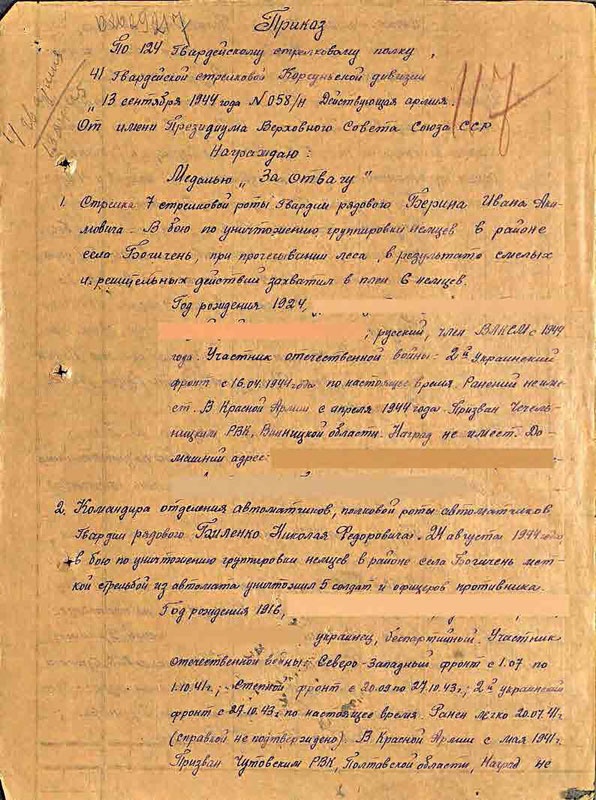 Приказ
По 124 Гвардейскому стрелковому полку,
41 Гвардейской стрелковой Корсуньской дивизии
"13 сентября 1944 года №058/н Действующая армия.
117
От имени Президиума Верховного Совета Союза ССР
Награждаю:
Медалью „За Отвагу"
1. Стрелка 7 стрелковой роты Гвардии рядового Берина Ивана Аки-
мовича - В бою по уничтожению группировки немцев в районе
села Богичень, при прочесывании леса, в результате смелых
и решительных действий захватил в плен 6 немцев.
Год рождения 1924,
, русский, член ВЛКСМ с 1944
года. Участник отечественной войны - 2й Украинский
фронт с 16.04.1944 года по настоящее время. Ранений не име-
ет. В Красной Армии с апреля 1944 года. Призван Чечель-
ницким РВК, Винницкой области. Наград не имеет. До-
машний адрес:
2. Командира отделения автоматчиков, полковой роты автоматчиков
Гвардии рядового Биленко Николая Федоровича. 24 августа 1944 года
в бою по уничтожению группировки немцев в районе села Богичень мет-
кой стрельбой из автомата уничтожил 5 солдат и офицеров противника.
Год рождения 1916,
украинец, беспартийный. Участник
отечественной войны: Северо-Западный фронт с 1.07 по
1.10.41г.; Степной фронт с 20.09 по 27.10.43г; 2й украинский
фронт с 27.10.43г по настоящее время. Ранен легко 20.07.41г
(справкой не подтверждено). В Красной Армии с мая 1941г.
Призван Чутовским РВК, Полтавской области, Наград не